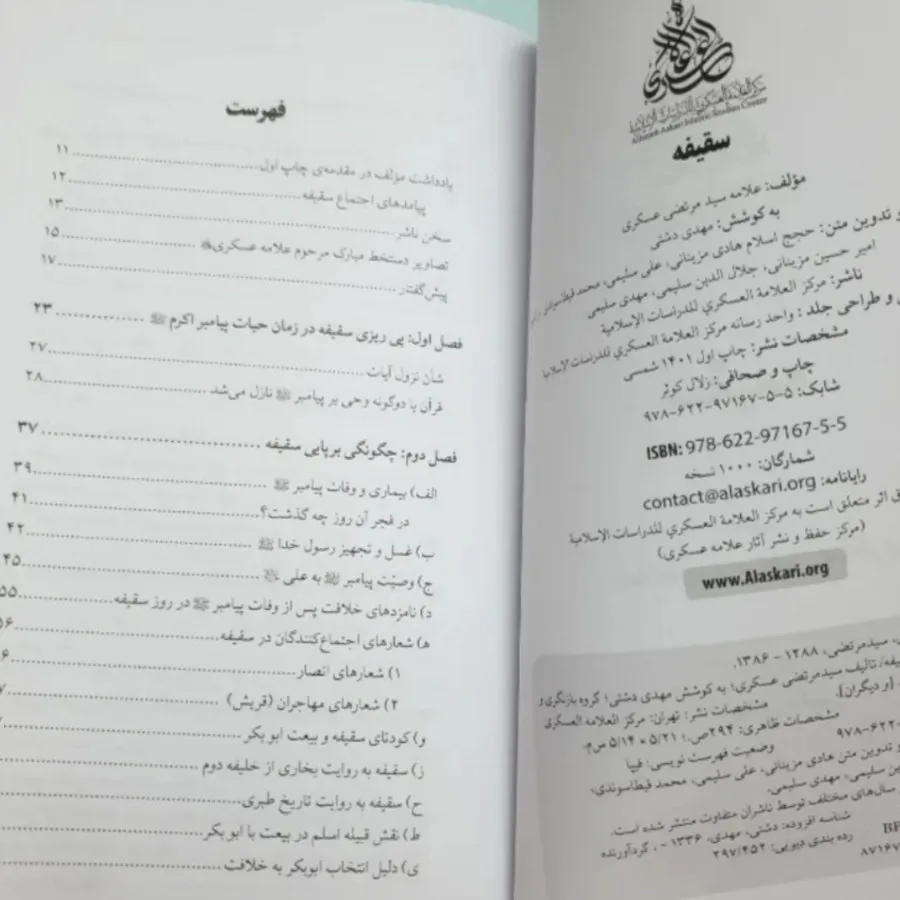 مرکز العلامة العسكري للدراسات الإسلامية
Allameh Askari Islamic Studies Center
سقیفه
مؤلف: علامه سید مرتضی عسکری
به کوشش: مهدی دشتی
و تدوین متن: حجج اسلام هادی مزینانی، علی سلیمی، محمد قیطاسوندی
امیر حسین مزینانی، جلال الدین سلیمی، مهدی سلیمی
ناشر: مرکز العلامة العسكري للدراسات الإسلامية
و طراحی جلد: واحد رسانه مرکز العلامة العسكري للدراسات الإسلامية
مشخصات نشر: چاپ اول ۱۴۰۱ شمسی
چاپ و صحافی: زلال کوثر
شابک: ۵-۵-۹۷۱۶۷-۶۲۲-۹۷۸
ISBN: 978-622-97167-5-5
شمارگان: ۱۰۰۰ نسخه
رایانامه: contact@alaskari.org
اثر متعلق است به مرکز العلامة العسكري للدراسات الإسلامية
(مرکز حفظ و نشر آثار علامه عسکری)
www.Alaskari.org
سیدمرتضی، ۱۲۸۸ - ۱۳۸۶.
تالیف سیدمرتضی عسکری؛ به کوشش مهدی دشتی؛ گروه بازنگری و
[و دیگران].
مشخصات نشر: تهران: مرکز العلامه العسکری
مشخصات ظاهری: ۲۹۴ص.؛ ۵/۱۴×۵/۲۱ س‌م.
۹۷۸-۶۲۲-
وضعیت فهرست نویسی: فیپا
و تدوین متن هادی مزینانی، علی سلیمی، محمد قیطاسوندی،
سلیمی، مهدی سلیمی.
سال‌های مختلف توسط ناشران متفاوت منتشر شده است.
شناسه افزوده: دشتی، مهدی، ۱۳۳۶ - ، گردآورنده
رده بندی دیویی: ۲۹۷/۴۵۲
فهرست
یادداشت مؤلف در مقدمه‌ی چاپ اول ۱۱
پیامدهای اجتماع سقیفه ۱۲
سخن ناشر ۱۳
تصاویر دستخط مبارک مرحوم علامه عسکری ۱۵
پیش‌گفتار ۱۷
فصل اول: پی ریزی سقیفه در زمان حیات پیامبر اکرم ﷺ ۲۳
شأن نزول آیات ۲۷
قرآن با دوگونه وحی بر پیامبر ﷺ نازل می‌شد ۲۸
فصل دوم: چگونگی برپایی سقیفه ۳۷
الف) بیماری و وفات پیامبر ﷺ ۳۹
در فجر آن روز چه گذشت؟ ۴۱
ب) غسل و تجهیز رسول خدا ﷺ ۴۲
ج) وصیّت پیامبر ﷺ به علی ۴۵
د) نامزدهای خلافت پس از وفات پیامبر ﷺ در روز سقیفه ۵۵
ه) شعارهای اجتماع‌کنندگان در سقیفه
۱) شعارهای انصار
۲) شعارهای مهاجران (قریش)
و) کودتای سقیفه و بیعت ابوبکر
ز) سقیفه به روایت بخاری از خلیفه دوم
ح) سقیفه به روایت تاریخ طبری
ط) نقش قبیله اسلم در بیعت با ابوبکر
ی) دلیل انتخاب ابوبکر به خلافت